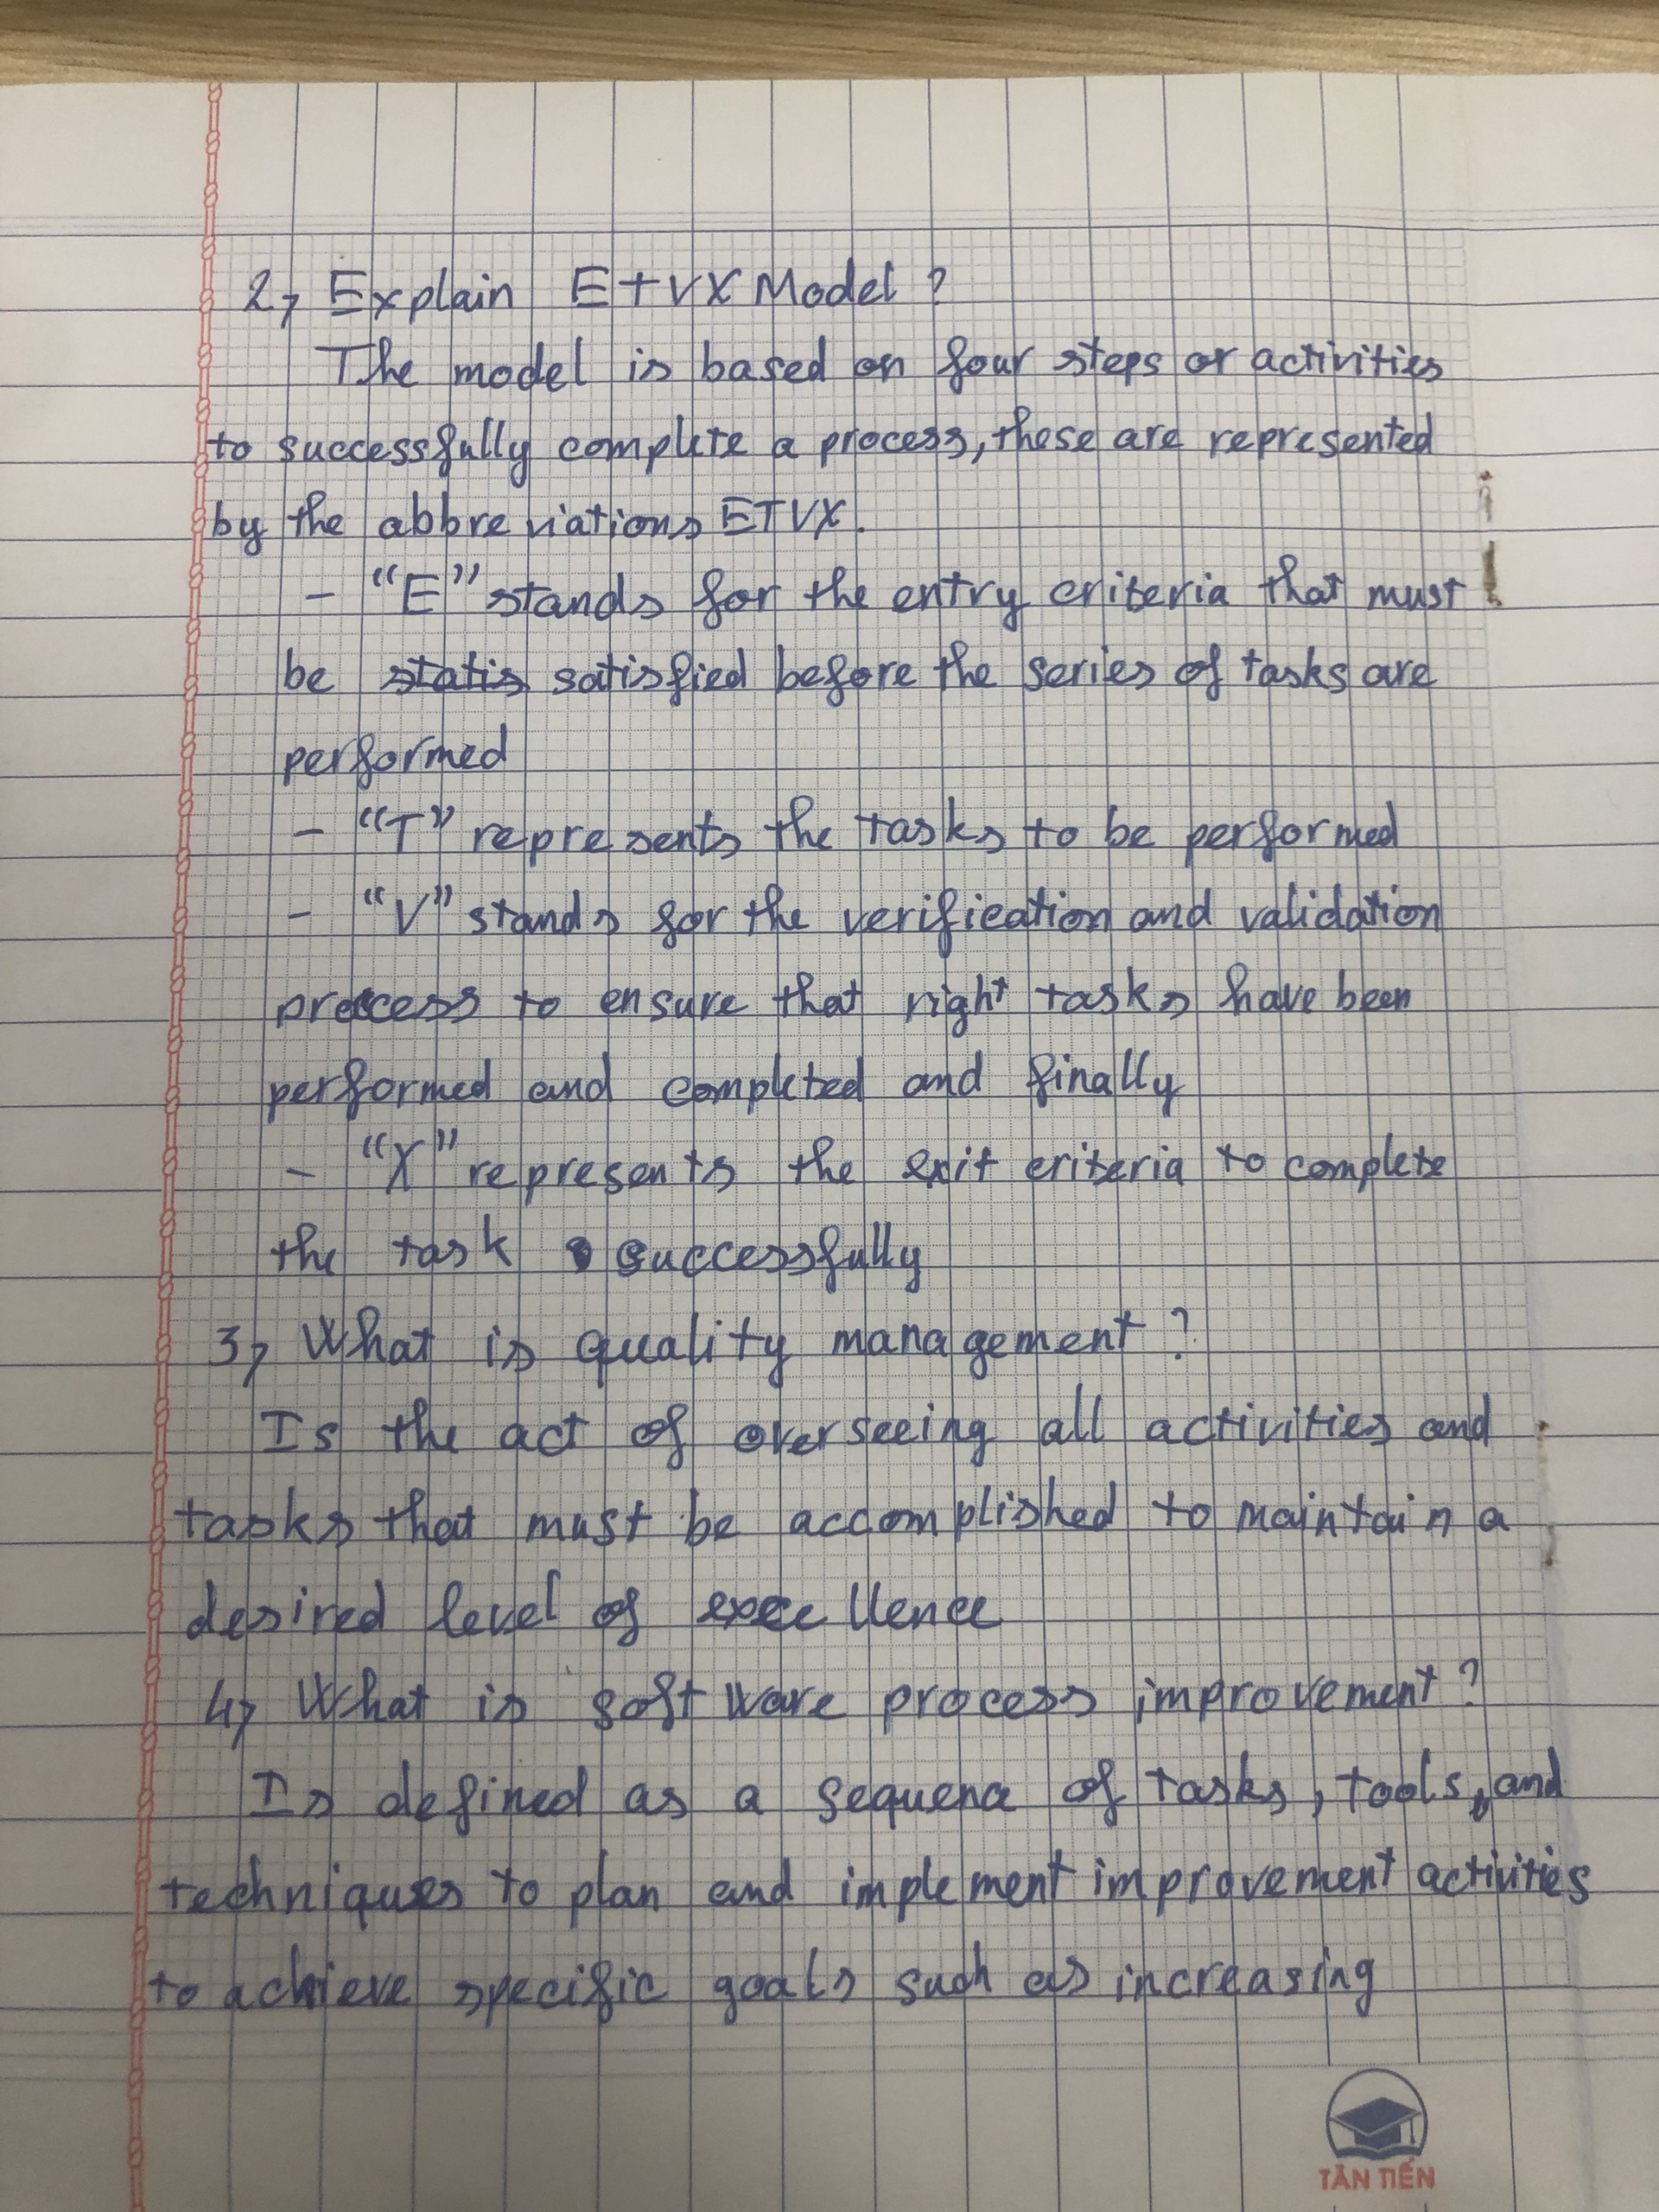 2, Explain ETVX Model ?
The model is based on four steps or activities
to successfully complete a process, these are represented
by the abbreviations ETVX.
- "E" stands for the entry criteria that must
be statis satisfied before the series of tasks are
performed
- "T" represents the tasks to be performed
- "V" stands for the verification and validation
process to ensure that right tasks have been
performed and completed and finally
- "X" represents the exit criteria to complete
the task successfully
3, What is quality management ?
Is the act of overseeing all activities and
tasks that must be accomplished to maintain a
desired level of excellence
4, What is software process improvement ?
Is defined as a sequence of tasks, tools, and
techniques to plan and implement improvement activities
to achieve specific goals such as increasing
TÂN TIẾN